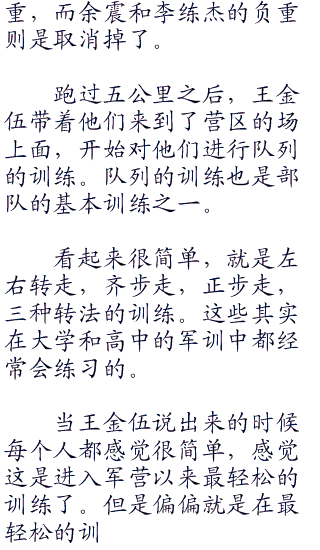 重，而余震和李练杰的负重
则是取消掉了。
跑过五公里之后，王金
伍带着他们来到了营区的场
上面，开始对他们进行队列
的训练。队列的训练也是部
队的基本训练之一。
看起来很简单，就是左
右转走，齐步走，正步走，
三种转法的训练。这些其实
在大学和高中的军训中都经
常会练习的。
当王金伍说出来的时候
每个人都感觉很简单，感觉
这是进入军营以来最轻松的
训练了。但是偏偏就是在最
轻松的训